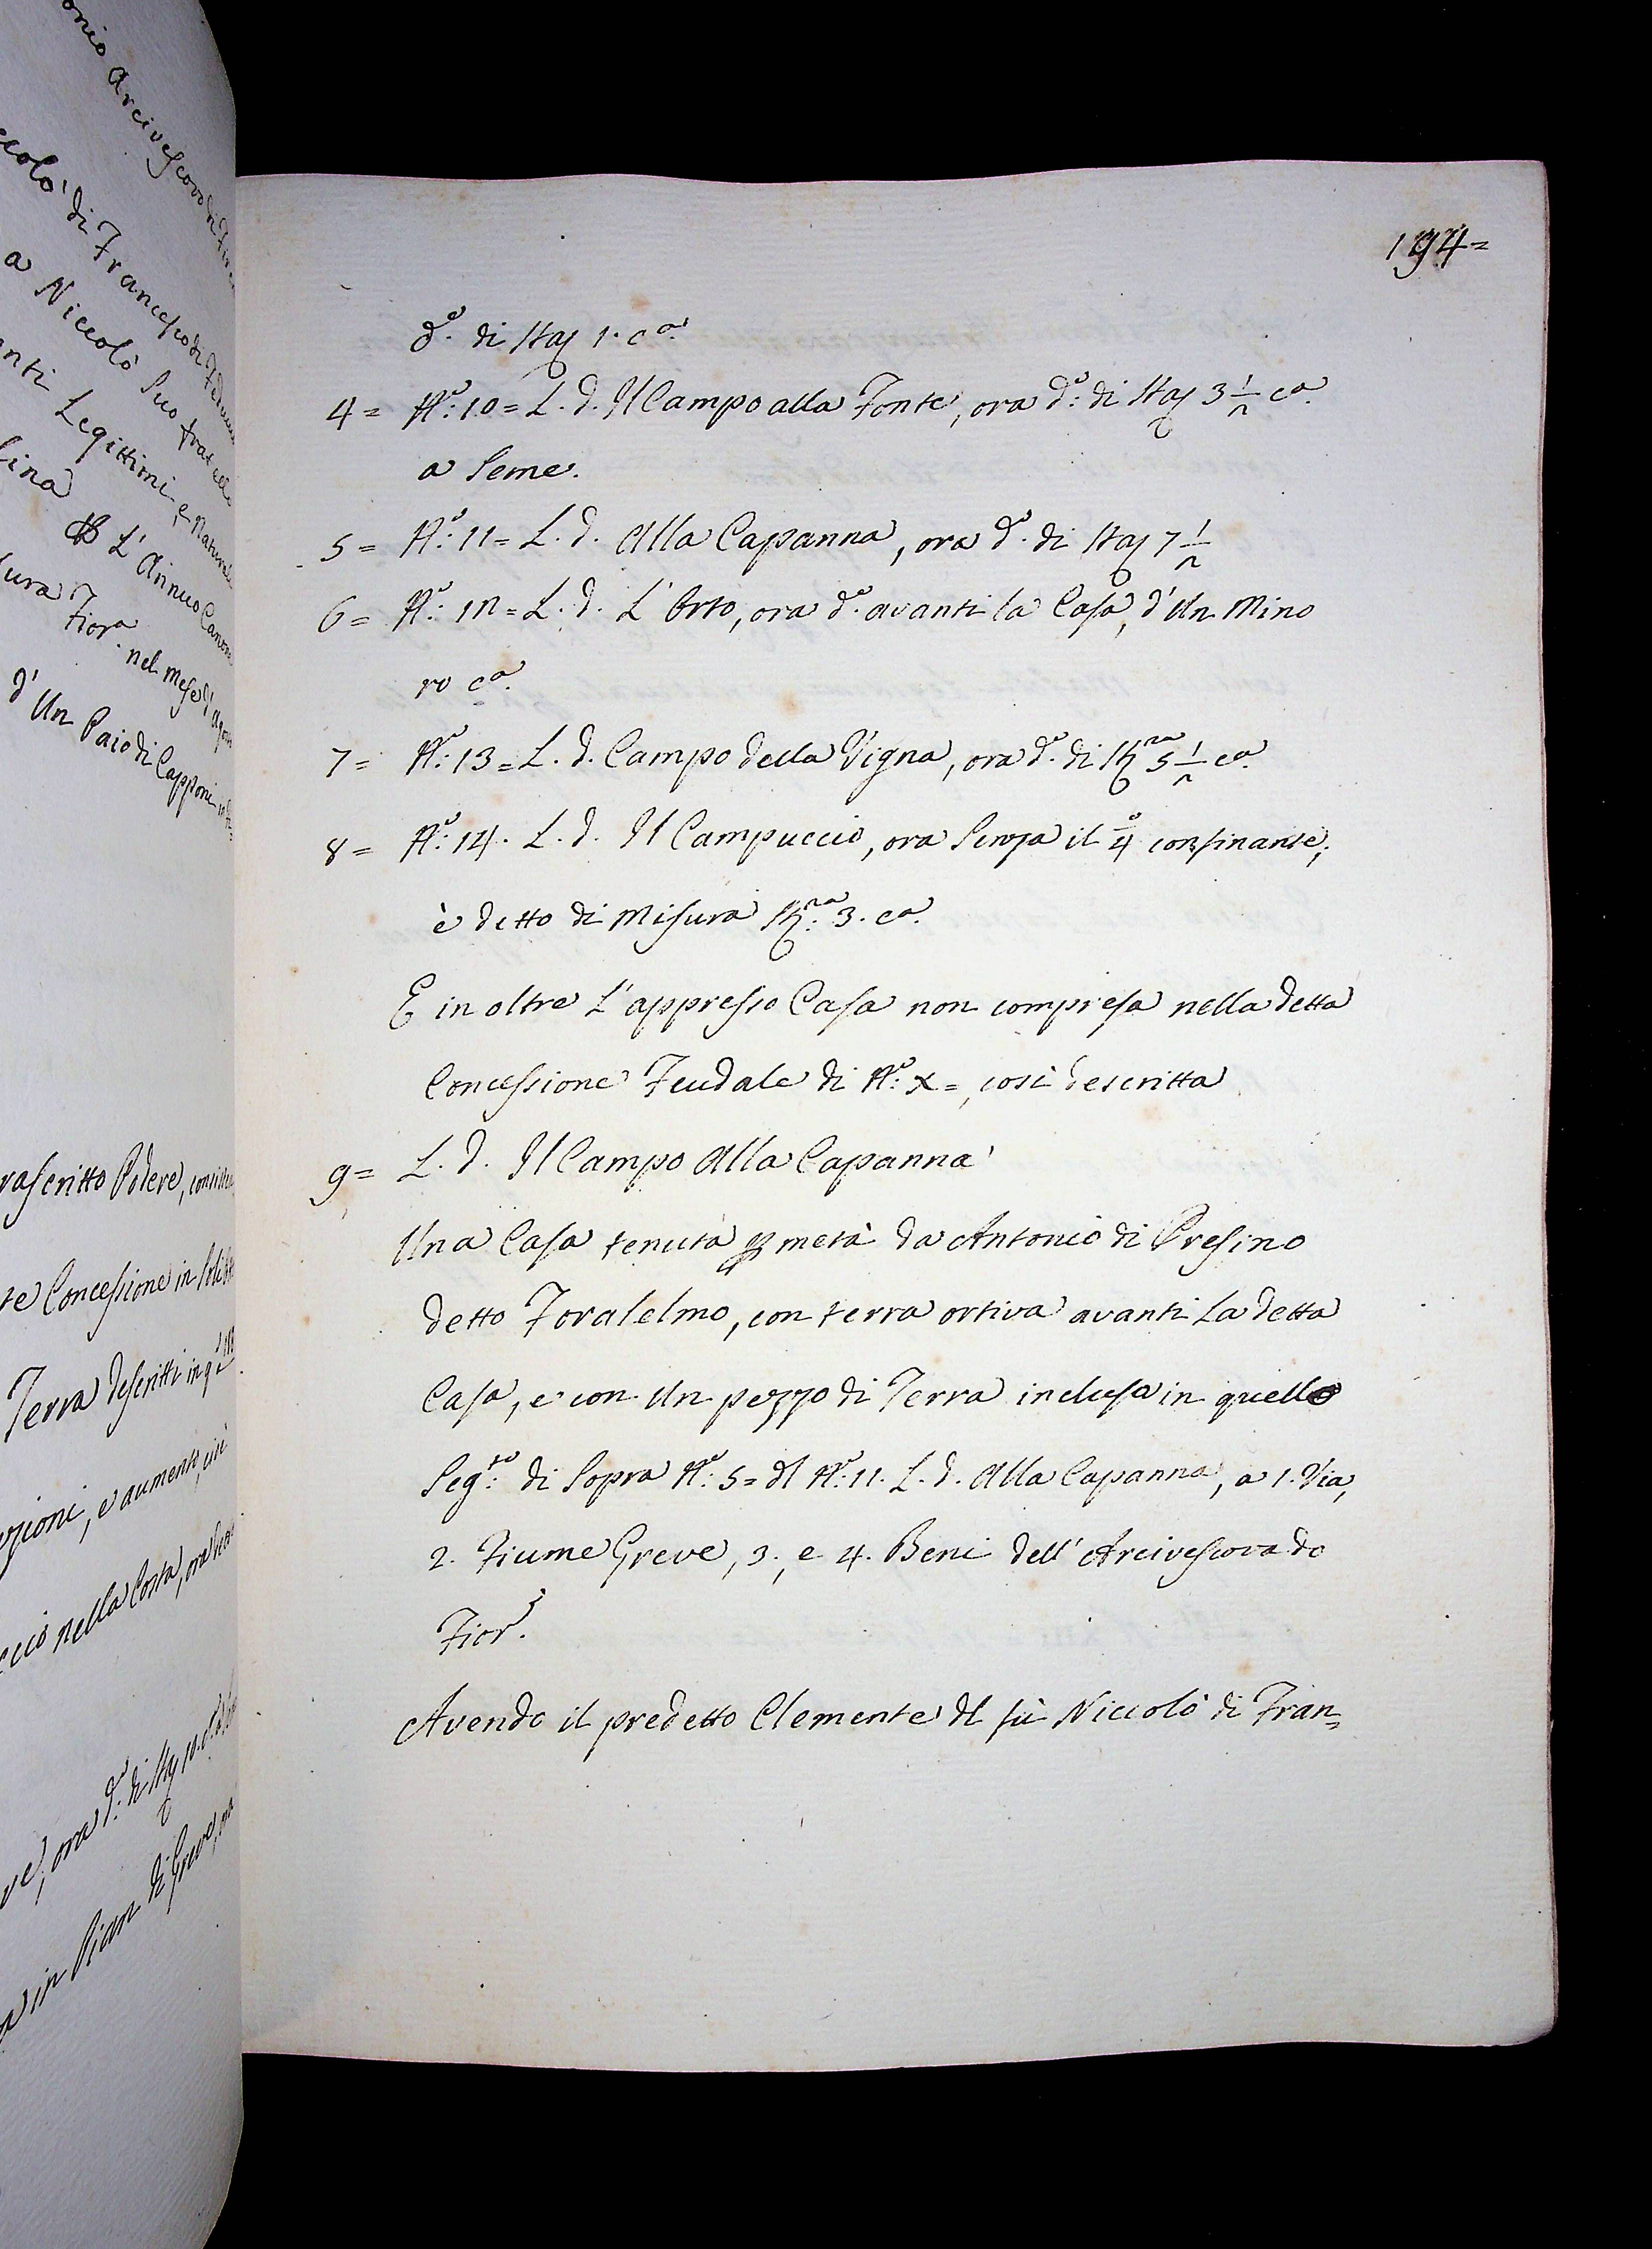 194=
d.º di Staj 1. cª.
4= Nº: 10= L. d. Il Campo alla Fonte, ora dº: di Staj 3 1/2 cª.
a Seme.
5= Nº: 11= L. d. Alla Capanna, ora dº. di Staj 7 1/2
6= Nº: 12= L. d. L'Orto, ora dº. avanti la Casa, d'Un Mino
ro cª.
7= Nº: 13= L. d. Campo della Vigna, ora dº. di Stª 5 1/2 cª.
8= Nº: 14. L. d. Il Campuccio, ora Senza il 4º confinante;
è detto di Misura Stª: 3. cª.
E in oltre L'appresso Casa non compresa nella detta
Concessione Feudale di Nº: X=, così descritta
9= L. d. Il Campo Alla Capanna
Una Casa tenuta p metà da Antonio di Presino
detto Foralelmo, con terra ortiva avanti La detta
Casa, e con Un pezzo di Terra inclusa in quello
Segto: di Sopra Nº: 5= dl Nº: 11. L. d. Alla Capanna, a 1. Via,
2. Fiume Greve, 3., e 4. Beni dell'Arcivescovado
Fior.º
Avendo il predetto Clemente dl fù Niccolò di Fran=
onio Arcivescovo di
ccolò di Francesco di
a Niccolò Suo fratello
anti Legittimi, e Naturali
L'Annuo Canone
sura Fiorª nel mese d'
d'Un Paio di Capponi
rascritto Podere,
te Concessione in
Terra descritti in
zioni, e aumento, cioè
ccio nella Costa, ora
ve, ora dº: di Staj
in Pian di Greve,